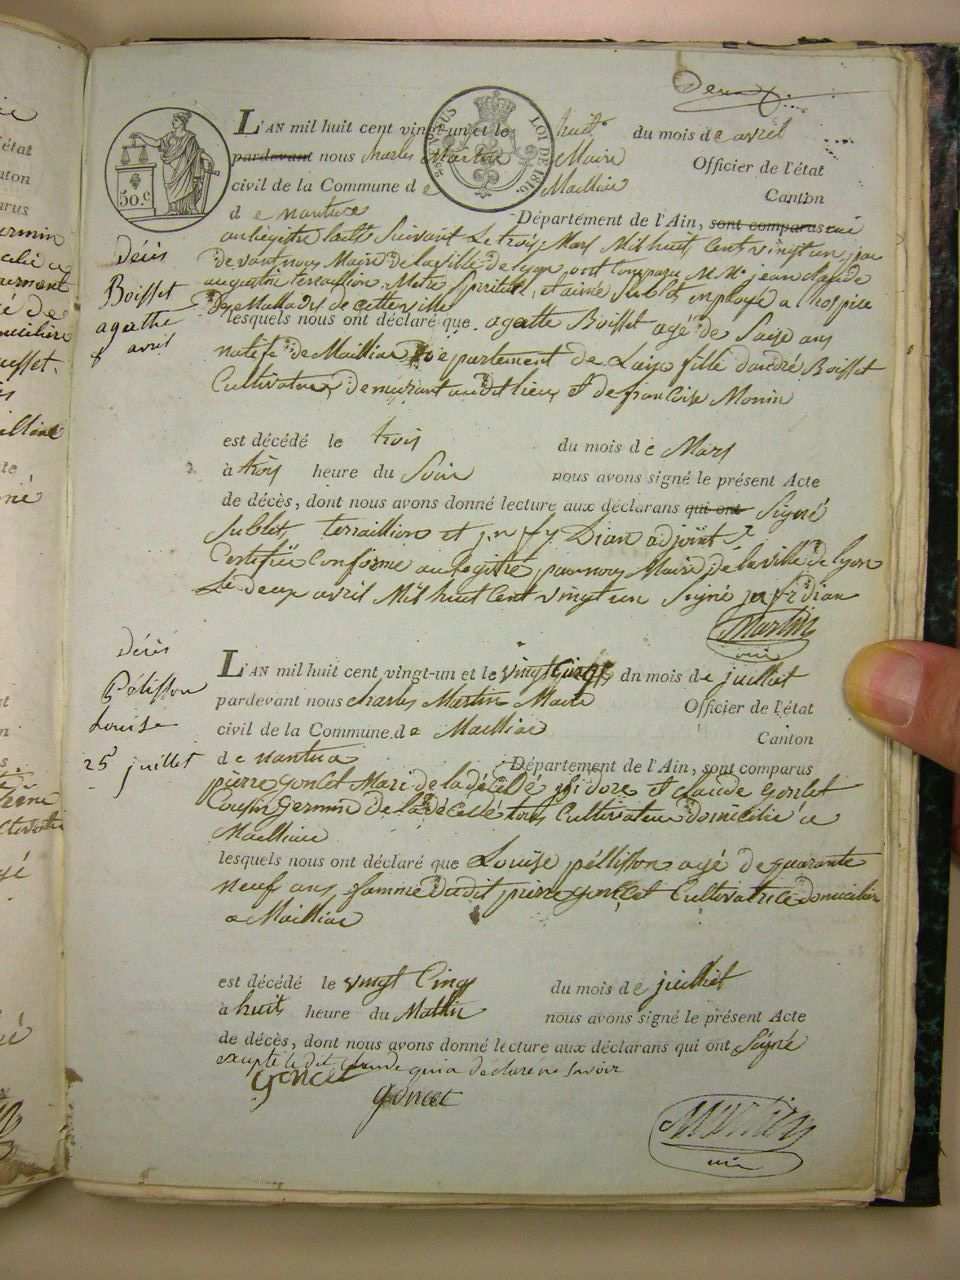 Deux
50.c
TIMBRE
LOI DE 1816.
L'AN mil huit cent vingt-un et le huit du mois de avril
pardevant nous charles Martin Maire Officier de l'état
civil de la Commune de Mailliac Canton
de nantua Département de l'Ain, sont comparus
décès
Boisset
agathe
8 avril
au registre Suivant Le trois Mars Mil huit Cent vingt un, par
devant nous Maire de la ville de Lyon, ont Comparu M. M. jean claude
augustin terraillion et aimé Sublet employé a hospice
Des Malades de cette ville
lesquels nous ont déclaré que agathe Boisset agé de Saize ans
natife de Mailliac Département de Lain fille d'andré Boisset
Cultivateur demeurant audit lieu, & de françoise Monin
est décédé le trois du mois de Mars
à trois heure du Soir nous avons signé le présent Acte
de décès, dont nous avons donné lecture aux déclarans qui ont Signé
Sublet, terraillion et Dian adjoint
Certifié Conforme au registre par nous Maire de la ville de Lyon
Le deux avril Mil huit Cent vingt un Signé dian
Martin
décès
Pélisson
Louise
25 juillet
L'AN mil huit cent vingt-un et le vingt cinq du mois de juillet
pardevant nous charles Martin Maire Officier de l'état
civil de la Commune de Mailliac Canton
de nantua Département de l'Ain, sont comparus
pierre Goncet Mari de la décédé isidore & claude Goncet
Cousin Germin de la décédé tous Cultivateur domicilié a
Mailliac
lesquels nous ont déclaré que Louise péllisson agé de quarante
neuf ans famme dudit pierre goncet Cultivatrice domicilié
a Mailliac
est décédé le vingt Cinq du mois de juilliet
à huit heure du Mattin nous avons signé le présent Acte
de décès, dont nous avons donné lecture aux déclarans qui ont Signé
exupté le dit claude qui a declaré ne savoir
Goncet
goncet
Martin